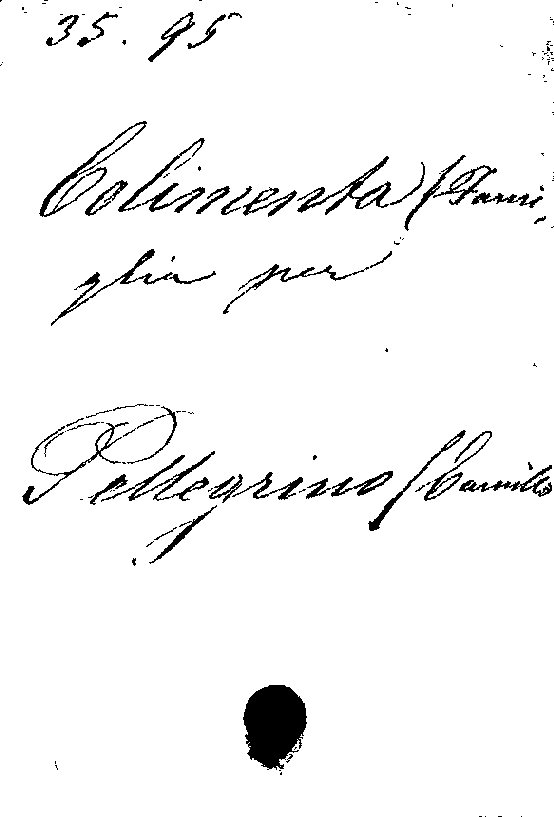 35. 95
Colimenta (Fami-
glia per
Pellegrino (Camillo